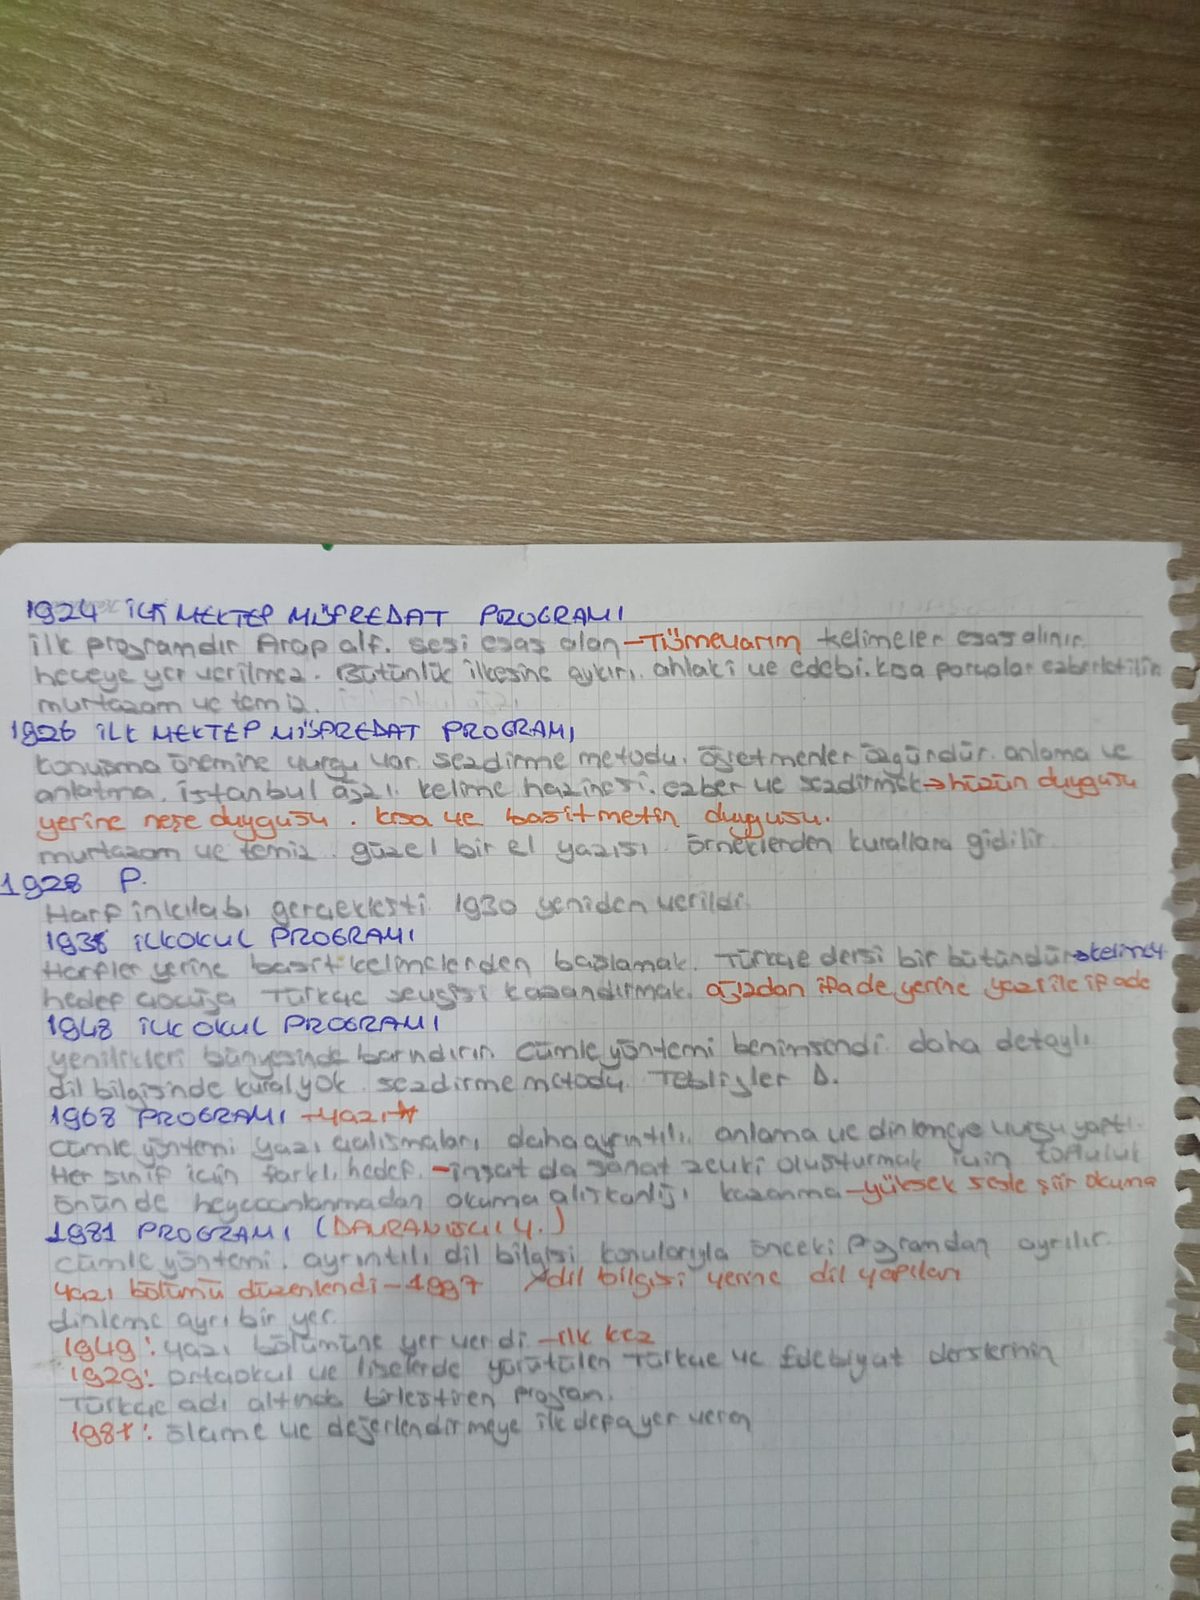 1924 İLK MEKTEP MÜFREDAT PROGRAMI
ilk programdır Arap alf. sesi esas alan - Tümevarım kelimeler esas alınır.
heceye yer verilmez. Bütünlük ilkesine aykırı. ahlaki ve edebi. kısa parçalar ezberletilir
muntazam ve temiz.
1926 İLK MEKTEP MÜFREDAT PROGRAMI
Konuşma önemine vurgu var. sezdirme metodu. öğretmenler özgündür. anlama ve
anlatma. İstanbul ağzı. kelime hazinesi. ezber ve sezdirmek → hüzün duygusu
yerine neşe duygusu. kısa ve basit metin duygusu.
muntazam ve temiz. güzel bir el yazısı. örneklerden kurallara gidilir.
1928 P.
Harf inkılabı gerçekleşti 1930 yeniden verildi.
1936 İLKOKUL PROGRAMI
Harfler yerine basit kelimelerden başlamak. Türkçe dersi bir bütündür
hedef çocuğa Türkçe sevgisi kazandırmak. ağızdan ifade yerine yazı ile ifade
1948 İLKOKUL PROGRAMI
yenilikleri bünyesinde barındırın Cümle yöntemi benimsendi. daha detaylı
dil bilgisinde kural yok. sezdirme metodu. Tebliğler D.
1968 PROGRAMI - yazı
cümle yöntemi yazı çalışmaları, daha ayrıntılı. anlama ve dinlemeye vurgu yaptı.
Her sınıf için farklı hedef. - inşat da sanat zevki oluşturmak için topluluk
önünde heyecanlanmadan okuma alışkanlığı kazanma - yüksek sesle şiir okuma
1981 PROGRAMI (DAVRANIŞÇI Y.)
cümle yöntemi. ayrıntılı dil bilgisi konularıyla önceki programdan ayrılır.
yazı bölümü düzenlendi - 1997 dil bilgisi yerine dil yapıları
dinleme ayrı bir yer.
1949: yazı bölümüne yer verdi - ilk kez
1929: ortaokul ve liselerde yürütülen Türkçe ve Edebiyat derslerinin
Türkçe adı altında birleştiren program.
ölçme ve değerlendirmeye ilk defa yer veren